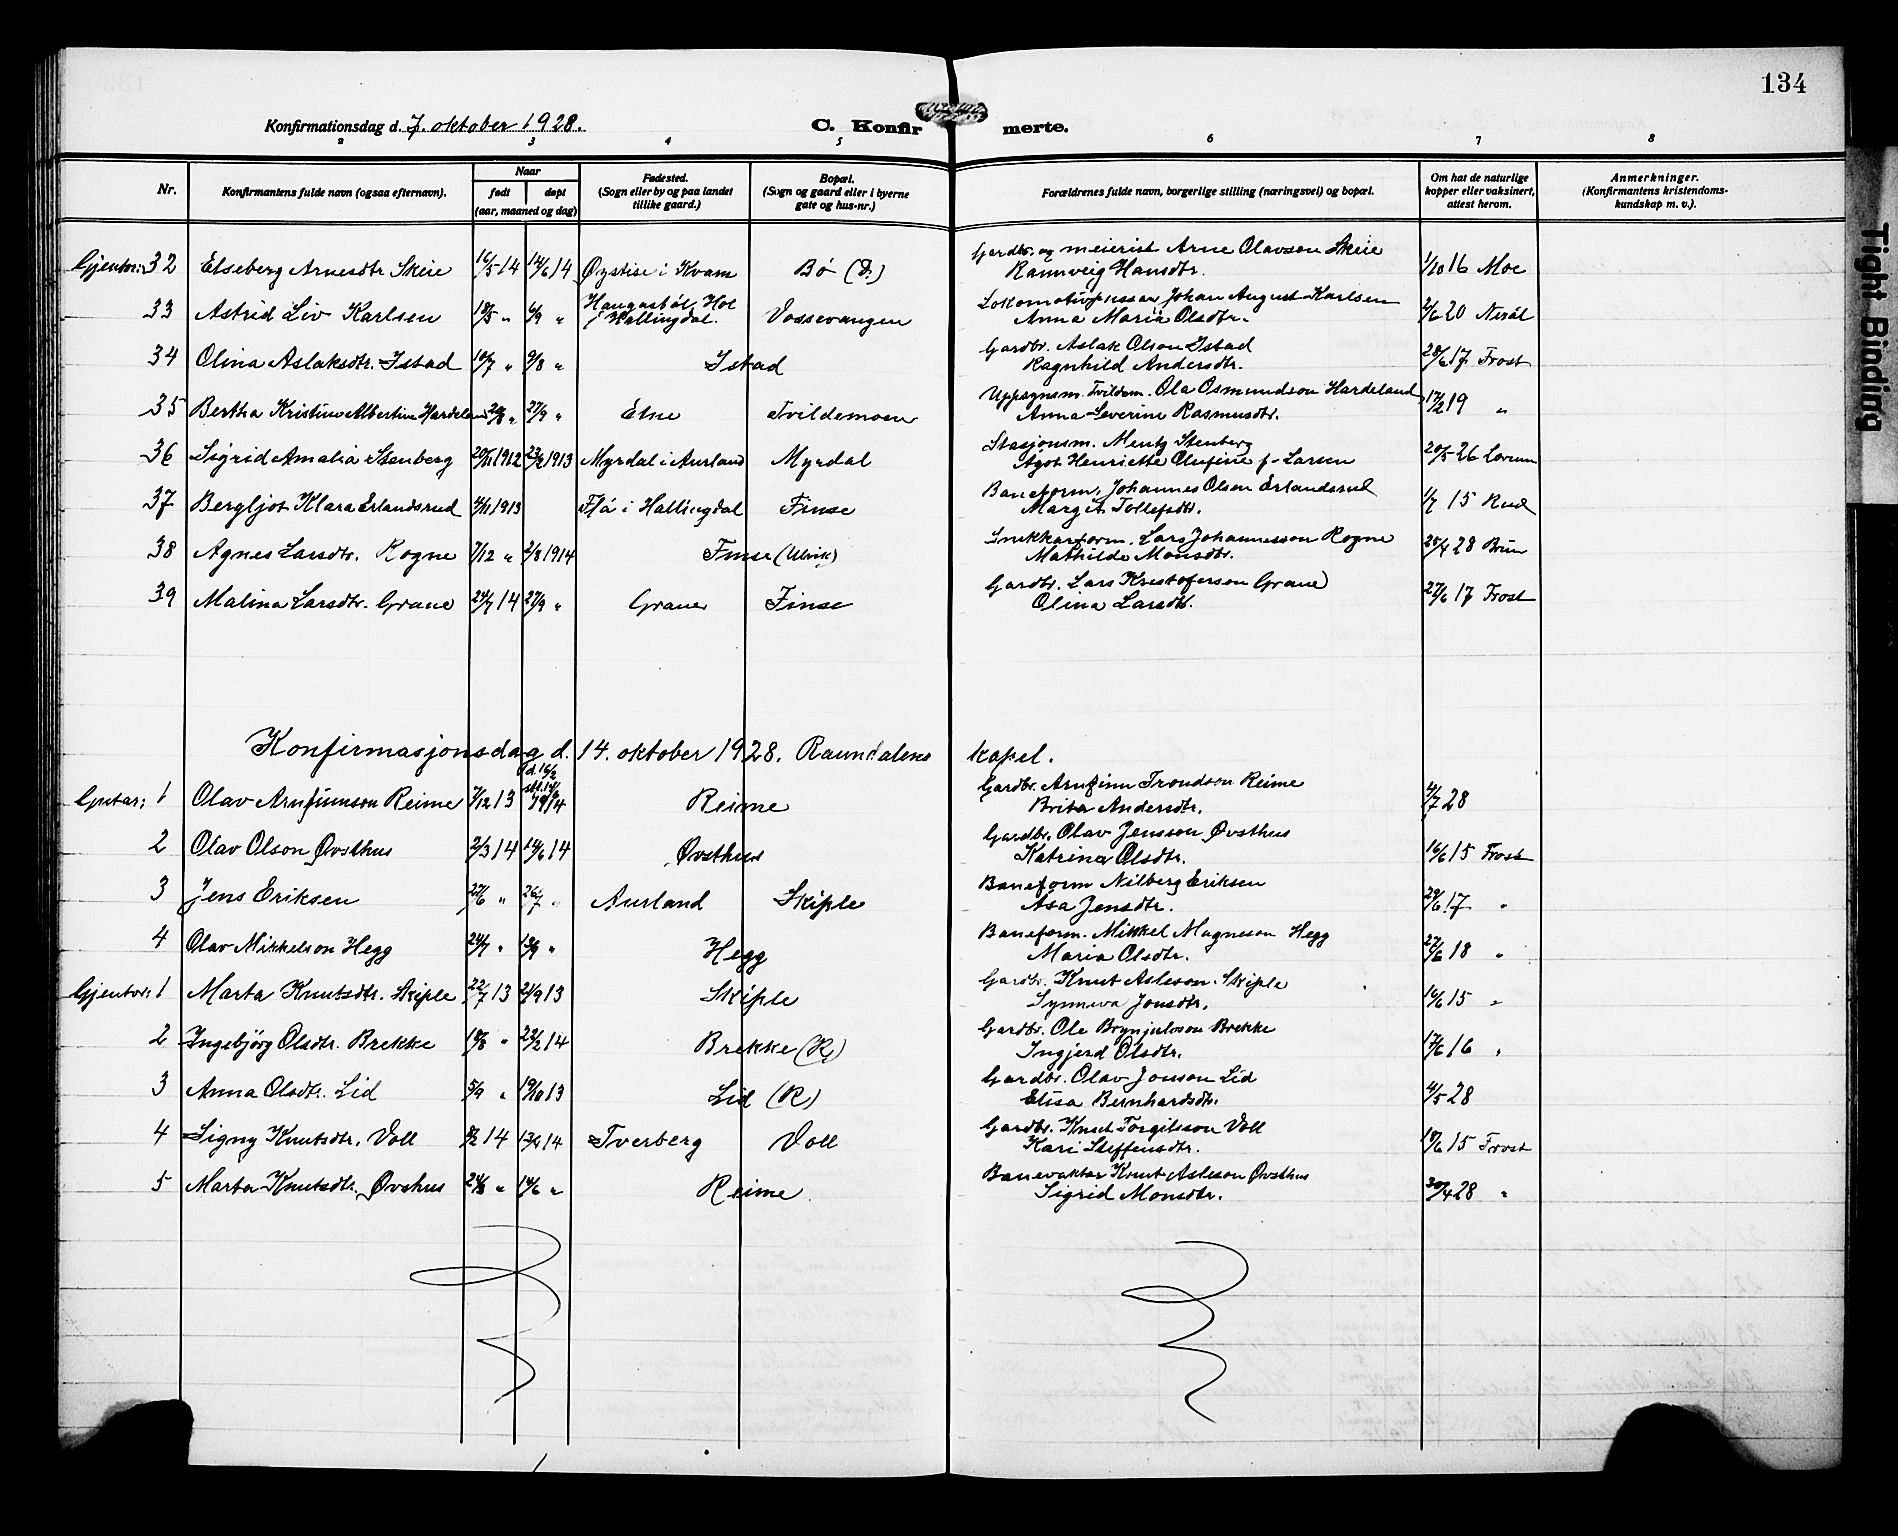 134
Konfirmationsdag d. 7. oktober 1928.
C. Konfirmerte.
2 3 4 5 6 7 8
Nr.
Konfirmantens fulde navn (ogsaa efternavn).
Naar
født døpt
(aar, maaned og dag)
Fødested.
(Sogn eller by og paa landet
tillike gaard.)
Bopæl.
(Sogn og gaard eller i byerne
gate og hus-nr.)
Forældrenes fulde navn, borgerlige stilling (næringsvei) og bopæl.
Om hat de naturlige
kopper eller vaksinert,
attest herom.
Anmerkninger.
(Konfirmantens kristendoms-
kundskap m. v.).
Gardbr. og meierist Arne Olavson Skeie
Gjentor: 32 Elseberg Arnesdtr Skeie 16/5 14 14/6 14 Øystise i Kvam Bø (D.) Rannveig Hansdtr. 1/10 16 Moe
Haugastøl, Hol Lokomotivpussar Johan August Karlsen
33 Astrid Liv Karlsen 18/5 " 6/9 " i Hallingdal. Vossevangen Anna Maria Olsdtr. 2/6 20 Nerål
Gardbr. Aslak Olson Istad
34 Olina Aslaksdtr. Istad 10/7 " 9/8 " Istad Ragnhild Andersdtr. 28/6 17 Frost
Uppsynsm. Tvildem. Ola Osmundson Hardeland
35 Bertha Kristine Albertine Hardeland " 27/9 " Etne Tvildemoen Anna Severine Rasmusdtr. 17/2 19 "
Stasjonsm. Mentz Stenberg
36 Sigrid Amalia Stenberg 20/11 1912 23/2 1913 Myrdal i Aurland Myrdal Agot Henriette Olufine f. Larsen 20/5 26
Baneform. Johannes Olsen Erlandsrud
37 Bergljot Klara Erlandsrud 4/11 1913 Flå i Hallingdal Finse Margit Tollefsdtr. 1/7 15 Rud
Snekkarform. Lars Johannesson Rogne
38 Agnes Larsdtr. Rogne 7/12 " 2/8 1914 Finse (Ulvik) Mathilde Monsdtr. 25/4 28 Brun
Gardbr. Lars Kristoferson Grane
39 Malina Larsdtr. Grane 24/7 14 27/9 " Grane Finse Olina Larsdtr. 27/6 17 Frost
Konfirmasjonsdag d. 14. oktober 1928. Raundalens kapel.
Gardbr. Arnfinn Trondson Reime
Gutar: 1 Olav Arnfinnson Reime 7/12 13 Reime Brita Andersdtr. 4/7 28
Gardbr. Olav Jensson Øvsthus
2 Olav Olson Øvsthus 2/3 14 14/6 14 Øvsthus Katrina Olsdtr. 16/6 15 Frost
Baneform Nilberg Eriksen
3 Jens Eriksen 27/6 " 26/7 " Aurland Skiple Åsa Jensdtr. 29/6 17 "
Baneform. Mikkel Magneson Hegg
4 Olav Mikkelson Hegg 24/7 " 13/9 " Hegg Maria Olsdtr. 27/6 18 "
Gardbr. Knut Asleson Skiple
Gjentor: 1 Marta Knutsdtr. Skiple 22/7 13 2/9 13 Skiple Synneva Jonsdtr. 16/6 15 "
Gardbr. Ole Brynjulvson Brekke
2 Ingebjörg Olsdtr. Brekke 18/8 " 22/2 14 Brekke (R) Ingjerd Olsdtr. 17/6 16 "
Gardbr. Olav Jonson Lid
3 Anna Olsdtr. Lid 5/9 " 19/10 13 Lid (R) Elisa Bernhardsdtr. 4/5 28
Gardbr. Knut Torgilsson Voll
4 Signy Knutsdtr. Voll 14 13/4 14 Tverberg Voll Kari Steffensdtr. 18/6 15 Frost
Banevaktar Knut Asleson Øvsthus
5 Marta Knutsdtr. Øvshus 24/3 " 14/6 " Reime Sigrid Monsdtr. 30/4 28 "
Tight Binding